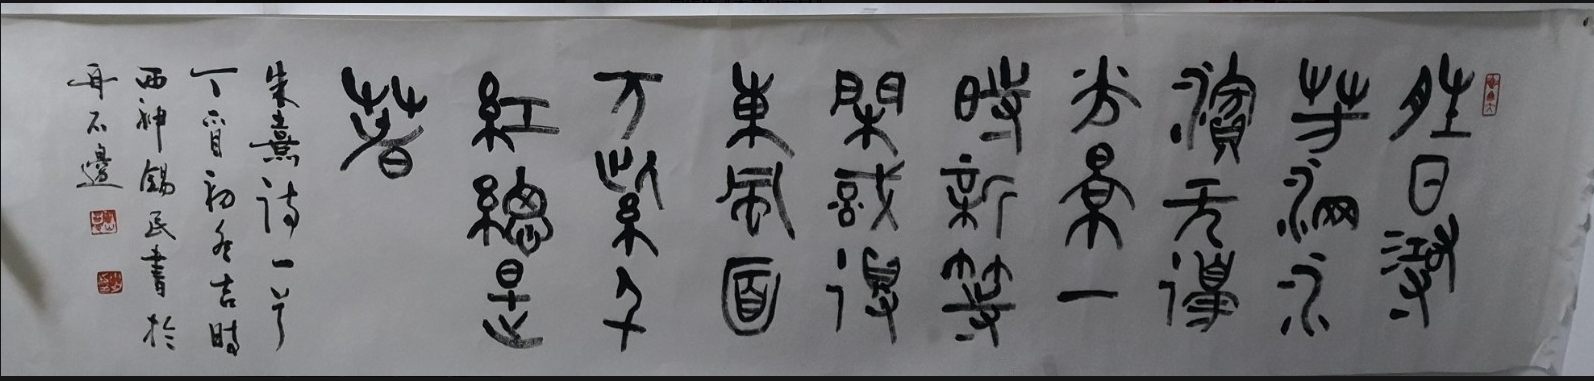 胜日尋
芳泗水
濱无邊
光景一
時新等
閑識得
東風面
万紫千
紅總是
春
朱熹詩一首
丁酉初冬吉時
西神錫民書於
石邊